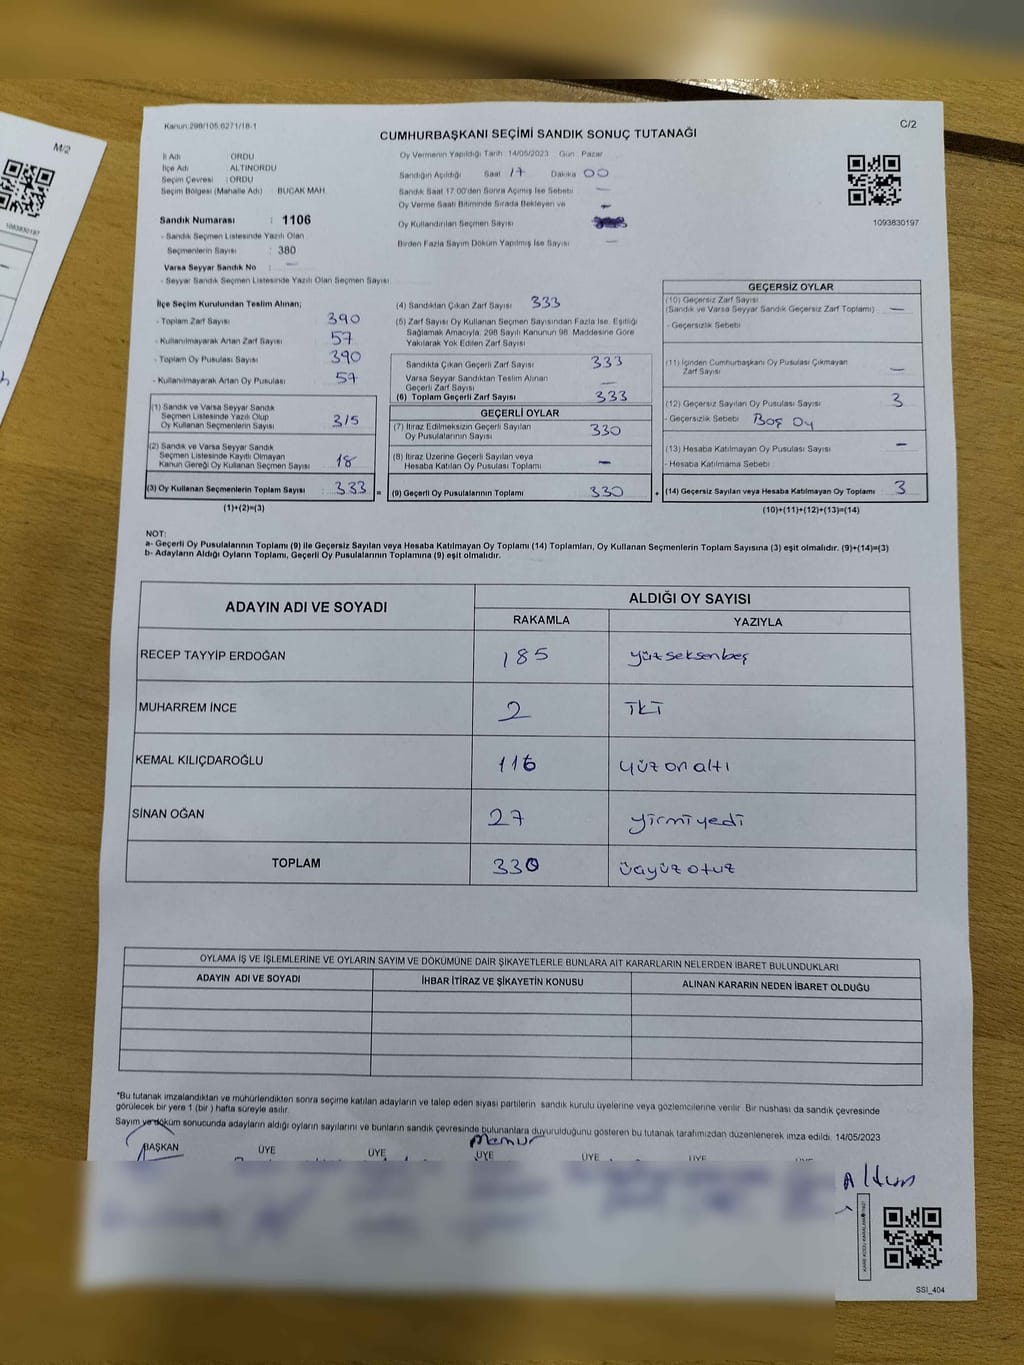 M/2
1093830197
Kanun:298/105,6271/18-1
C/2
CUMHURBAŞKANI SEÇİMİ SANDIK SONUÇ TUTANAĞI
İl Adı : ORDU
İlçe Adı : ALTINORDU
Seçim Çevresi : ORDU
Seçim Bölgesi (Mahalle Adı) : BUCAK MAH.
Oy Vermenin Yapıldığı Tarih :14/05/2023 Gün : Pazar
Sandığın Açıldığı Saat 17 Dakika 00
Sandık Saat 17:00'den Sonra Açılmış İse Sebebi —
Oy Verme Saati Bitiminde Sırada Bekleyen ve
Oy Kullandırılan Seçmen Sayısı
Birden Fazla Sayım Döküm Yapılmış İse Sayısı —
1093830197
Sandık Numarası : 1106
- Sandık Seçmen Listesinde Yazılı Olan
Seçmenlerin Sayısı : 380
Varsa Seyyar Sandık No : —
- Seyyar Sandık Seçmen Listesinde Yazılı Olan Seçmen Sayısı
İlçe Seçim Kurulundan Teslim Alınan;
- Toplam Zarf Sayısı 390
- Kullanılmayarak Artan Zarf Sayısı 57
- Toplam Oy Pusulası Sayısı 390
- Kullanılmayarak Artan Oy Pusulası 57
(1) Sandık ve Varsa Seyyar Sandık
Seçmen Listesinde Yazılı Olup
Oy Kullanan Seçmenlerin Sayısı 315
(2) Sandık ve Varsa Seyyar Sandık
Seçmen Listesinde Kayıtlı Olmayan
Kanun Gereği Oy Kullanan Seçmen Sayısı 18
(3) Oy Kullanan Seçmenlerin Toplam Sayısı 333 =
(1)+(2)=(3)
(4) Sandıktan Çıkan Zarf Sayısı 333
(5) Zarf Sayısı Oy Kullanan Seçmen Sayısından Fazla İse, Eşitliği
Sağlamak Amacıyla, 298 Sayılı Kanunun 98. Maddesine Göre
Yakılarak Yok Edilen Zarf Sayısı
Sandıkta Çıkan Geçerli Zarf Sayısı 333
Varsa Seyyar Sandıktan Teslim Alınan
Geçerli Zarf Sayısı —
(6) Toplam Geçerli Zarf Sayısı 333
GEÇERLİ OYLAR
(7) İtiraz Edilmeksizin Geçerli Sayılan
Oy Pusulalarının Sayısı 330
(8) İtiraz Üzerine Geçerli Sayılan veya
Hesaba Katılan Oy Pusulası Toplamı —
(9) Geçerli Oy Pusulalarının Toplamı 330 +
GEÇERSİZ OYLAR
(10) Geçersiz Zarf Sayısı
(Sandık ve Varsa Seyyar Sandık Geçersiz Zarf Toplamı) —
- Geçersizlik Sebebi
(11) İçinden Cumhurbaşkanı Oy Pusulası Çıkmayan
Zarf Sayısı —
(12) Geçersiz Sayılan Oy Pusulası Sayısı 3
- Geçersizlik Sebebi Boş Oy
(13) Hesaba Katılmayan Oy Pusulası Sayısı —
- Hesaba Katılmama Sebebi
(14) Geçersiz Sayılan veya Hesaba Katılmayan Oy Toplamı 3
(10)+(11)+(12)+(13)=(14)
NOT:
a- Geçerli Oy Pusulalarının Toplamı (9) ile Geçersiz Sayılan veya Hesaba Katılmayan Oy Toplamı (14) Toplamları, Oy Kullanan Seçmenlerin Toplam Sayısına (3) eşit olmalıdır. (9)+(14)=(3)
b- Adayların Aldığı Oyların Toplamı, Geçerli Oy Pusulalarının Toplamına (9) eşit olmalıdır.
ADAYIN ADI VE SOYADI
ALDIĞI OY SAYISI
RAKAMLA YAZIYLA
RECEP TAYYİP ERDOĞAN 185 yüzseksenbeş
MUHARREM İNCE 2 İKİ
KEMAL KILIÇDAROĞLU 116 yüz on altı
SİNAN OĞAN 27 yirmiyedi
TOPLAM 330 üçyüz otuz
OYLAMA İŞ VE İŞLEMLERİNE VE OYLARIN SAYIM VE DÖKÜMÜNE DAİR ŞİKAYETLERLE BUNLARA AİT KARARLARIN NELERDEN İBARET BULUNDUKLARI
ADAYIN ADI VE SOYADI İHBAR İTİRAZ VE ŞİKAYETİN KONUSU ALINAN KARARIN NEDEN İBARET OLDUĞU
*Bu tutanak imzalandıktan ve mühürlendikten sonra seçime katılan adayların ve talep eden siyasi partilerin sandık kurulu üyelerine veya gözlemcilerine verilir. Bir nushası da sandık çevresinde
görülecek bir yere 1 (bir ) hafta süreyle asılır.
Sayım ve döküm sonucunda adayların aldığı oyların sayılarını ve bunların sandık çevresinde bulunanlara duyurulduğunu gösteren bu tutanak tarafımızdan düzenlenerek imza edildi. 14/05/2023
Memur
BAŞKAN ÜYE ÜYE ÜYE ÜYE ÜYE
Altun
SSI_404